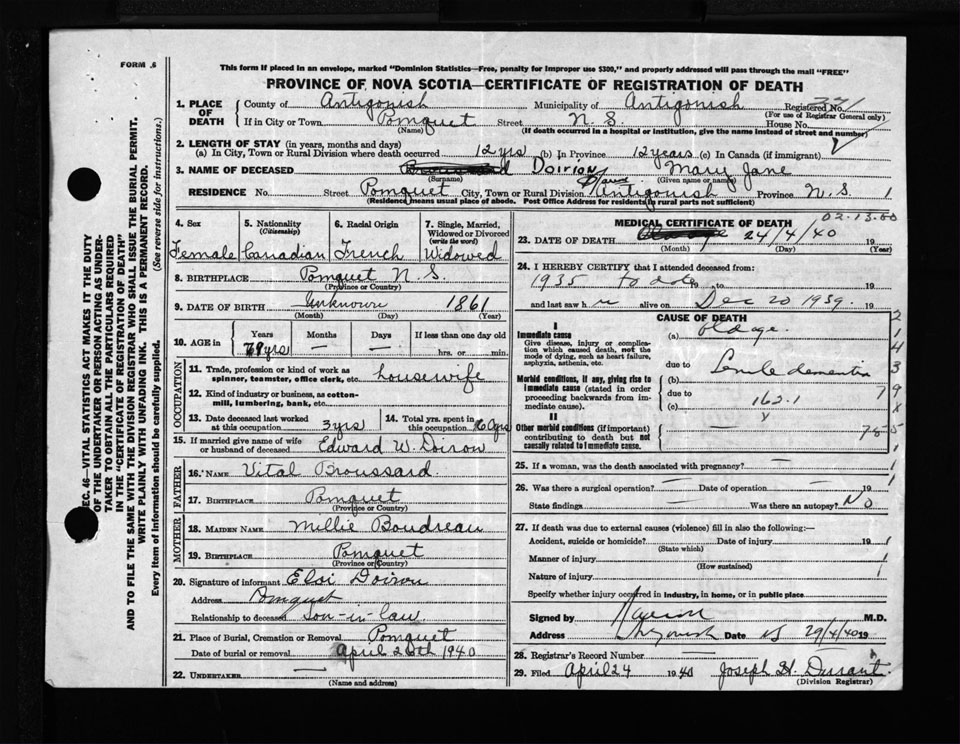 FORM .6
This form if placed in an envelope, marked "Dominion Statistics—Free, penalty for improper use $300," and properly addressed will pass through the mail "FREE"
PROVINCE OF NOVA SCOTIA—CERTIFICATE OF REGISTRATION OF DEATH
1. PLACE OF DEATH
County of Antigonish Municipality of Antigonish Registered No. 221
(For use of Registrar General only)
If in City or Town Pomquet Street N. S. House No.
(Name) (If death occurred in a hospital or institution, give the name instead of street and number)
2. LENGTH OF STAY (in years, months and days)
(a) In City, Town or Rural Division where death occurred 12 yrs (b) In Province 12 years (c) In Canada (if immigrant)
3. NAME OF DECEASED Broussard Doiron Mary Jane
(Surname) (Given name or names)
RESIDENCE No. Street Pomquet City, Town or Rural Division Antigonish Province N. S. 1
(Residence means usual place of abode. Post Office Address for residents in rural parts not sufficient)
4. Sex
Female
5. Nationality
(Citizenship)
Canadian
6. Racial Origin
French
7. Single, Married, Widowed or Divorced
(write the word)
Widowed
8. BIRTHPLACE Pomquet N. S.
(Province or Country)
9. DATE OF BIRTH Unknown 1861
(Month) (Day) (Year)
10. AGE in
Years Months Days If less than one day old
79 yrs — — hrs. or min.
OCCUPATION
11. Trade, profession or kind of work as spinner, teamster, office clerk, etc. housewife
12. Kind of industry or business, as cotton-mill, lumbering, bank, etc.
13. Date deceased last worked at this occupation 3 yrs
14. Total yrs. spent in this occupation 60 yrs
15. If married give name of wife or husband of deceased Edward W. Doiron
FATHER
16. NAME Vital Broussard
17. BIRTHPLACE Pomquet
(Province or Country)
MOTHER
18. MAIDEN NAME Millie Boudreau
19. BIRTHPLACE Pomquet
(Province or Country)
20. Signature of informant Eloi Doiron
Address Pomquet
Relationship to deceased son-in-law
21. Place of Burial, Cremation or Removal Pomquet
Date of burial or removal April 26th 1940
22. UNDERTAKER
(Name and address)
MEDICAL CERTIFICATE OF DEATH
02.13.00
23. DATE OF DEATH 24/4/40 19
(Month) (Day) (Year)
24. I HEREBY CERTIFY that I attended deceased from:
1935 to date to 19
and last saw h alive on Dec 20 1939. 19
CAUSE OF DEATH
I
Immediate cause
Give disease, injury or complication which caused death, not the mode of dying, such as heart failure, asphyxia, asthenia, etc.
(a) old age.
due to Senile dementia
Morbid conditions, if any, giving rise to immediate cause (stated in order proceeding backwards from immediate cause).
(b)
due to
(c) 162.1
II
Other morbid conditions (if important) contributing to death but not causally related to immediate cause.
25. If a woman, was the death associated with pregnancy?
26. Was there a surgical operation? Date of operation 19
State findings Was there an autopsy? No
27. If death was due to external causes (violence) fill in also the following:—
Accident, suicide or homicide? Date of injury 19
(State which)
Manner of injury
(How sustained)
Nature of injury
Specify whether injury occurred in industry, in home, or in public place
Signed by M.D.
Address Antigonish Date NS 29/4/40 19
28. Registrar's Record Number
29. Filed April 24 1940 Joseph H. Durant
(Division Registrar)
SEC. 46—VITAL STATISTICS ACT MAKES IT THE DUTY
OF THE UNDERTAKER OR PERSON ACTING AS UNDER-
TAKER TO OBTAIN ALL THE PARTICULARS REQUIRED
IN THE "CERTIFICATE OF REGISTRATION OF DEATH"
AND TO FILE THE SAME WITH THE DIVISION REGISTRAR WHO SHALL ISSUE THE BURIAL PERMIT.
WRITE PLAINLY WITH UNFADING INK. THIS IS A PERMANENT RECORD.
Every item of information should be carefully supplied. (See reverse side for instructions.)